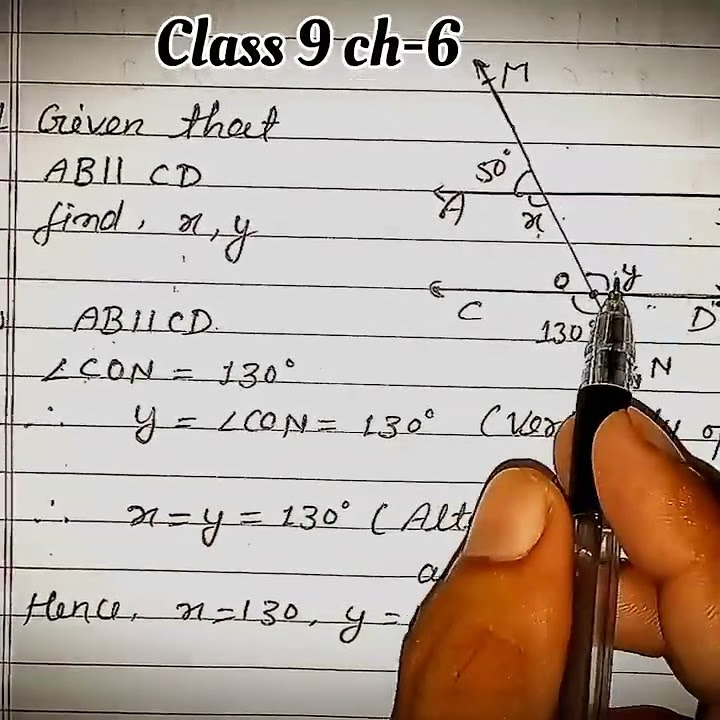 Class 9 ch-6
Given that
AB || CD
find, x, y
M
50°
A
x
O
y
C
D
130°
N
AB || CD.
∠CON = 130°
∴ y = ∠CON = 130°
∴ x = y = 130°
Hence, x = 130, y =